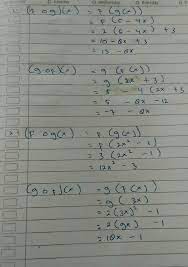 (f o g)(x) = f (g(x))
= f (5 - 4x)
= 2 (5 - 4x) + 3
= 10 - 8x + 3
= 13 - 8x
(g o f)(x) = g (f(x))
= g (2x + 3)
= 5 - 4 (2x + 3)
= 5 - 8x - 12
= -7 - 8x
(f o g)(x) = f (g(x))
= f (2x² - 1)
= 3 (2x² - 1)
= 12x² - 3
(g o f)(x) = g (f(x))
= g (3x)
= 2(3x)² - 1
= 2(9x) - 1
= 18x - 1